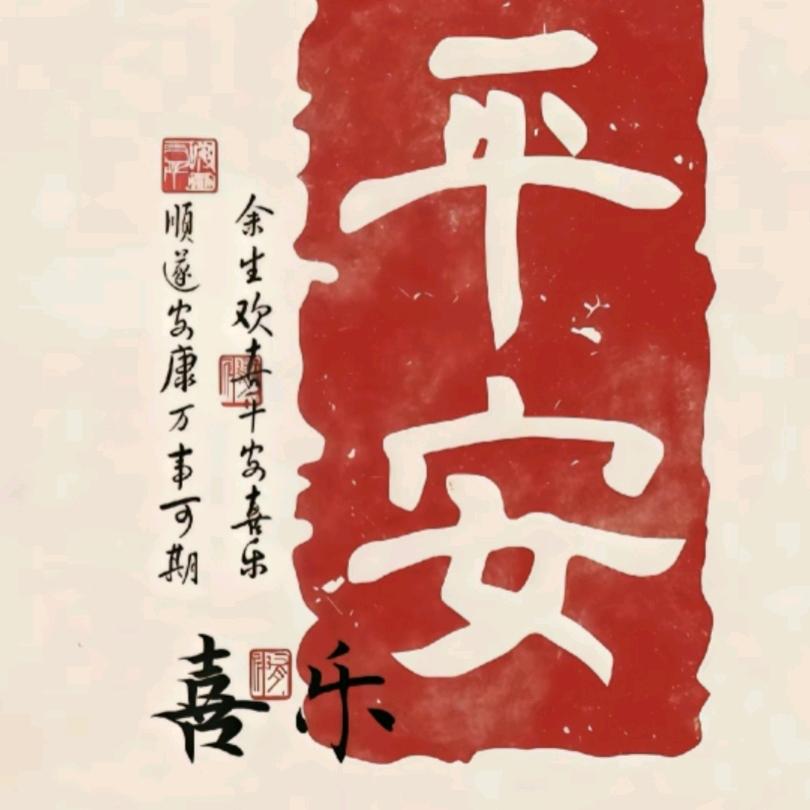 平安
余生欢喜平安喜乐
順遂安康万事可期
喜乐